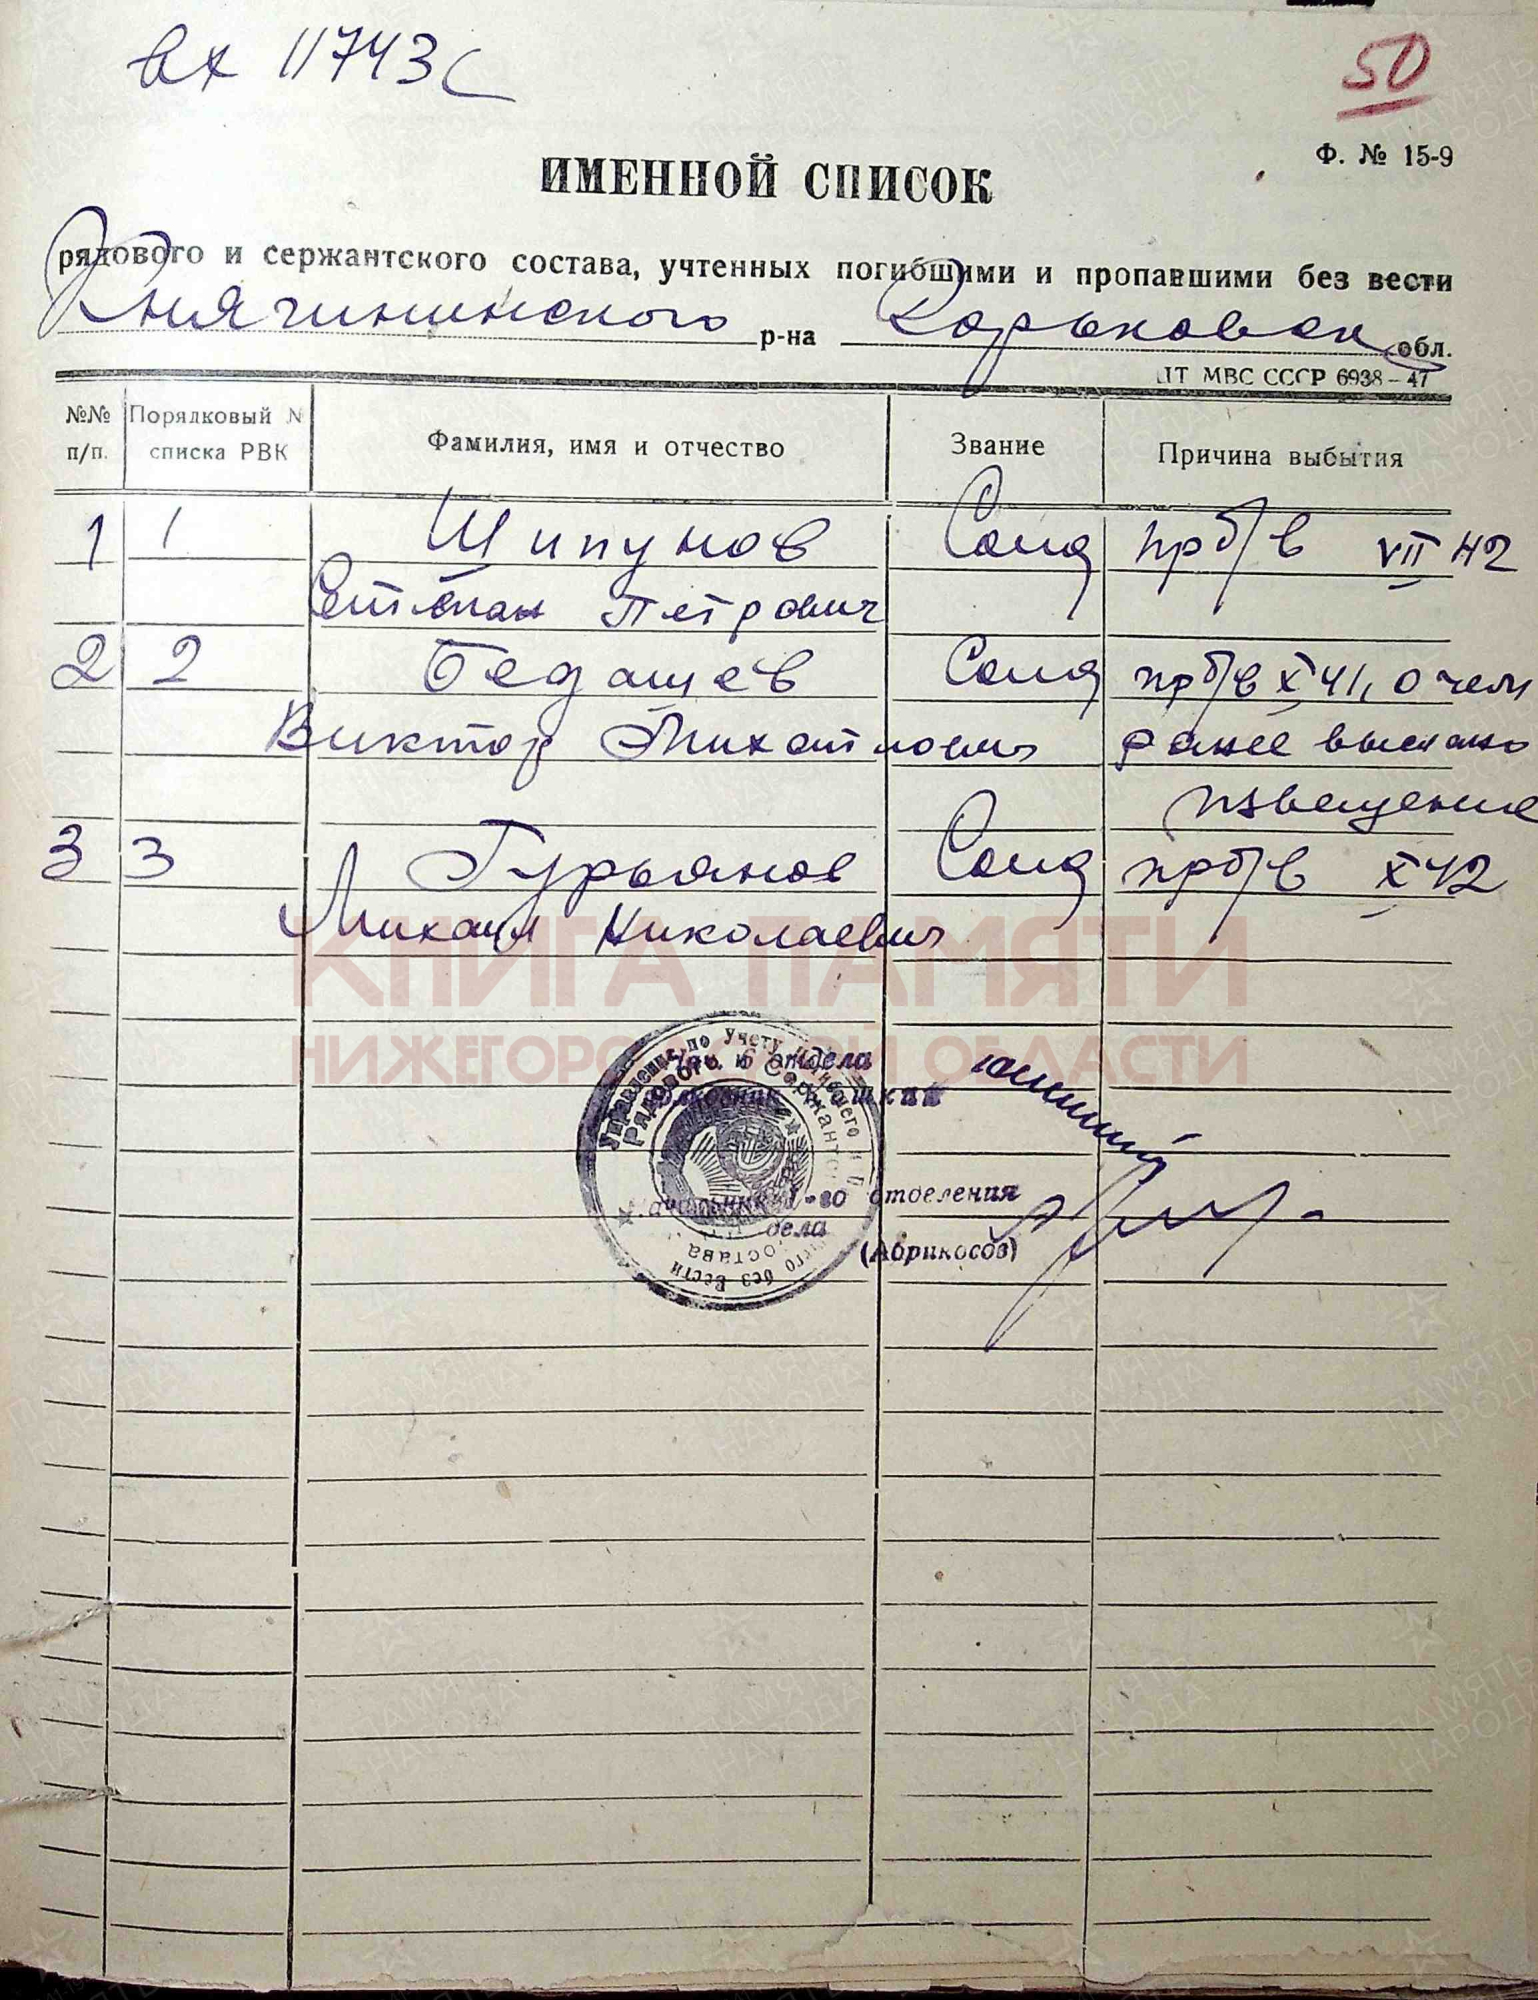 вх 11743с
50
Ф. № 15-9
ИМЕННОЙ СПИСОК
рядового и сержантского состава, учтенных погибшими и пропавшими без вести
Княгининского р-на Горьковск обл.
ЦТ МВС СССР 6938-47
№№ п/п. Порядковый № списка РВК Фамилия, имя и отчество Звание Причина выбытия
1 1 Шипунов Солд пр б/в VII 42
Степан Петрович
2 2 Бедашев Солд пр б/в X 41, о чем
Виктор Михайлович ранее выслано
извещение
3 3 Гурьянов Солд пр б/в X 42
Михаил Николаевич
КНИГА ПАМЯТИ
НИЖЕГОРОДСКОЙ ОБЛАСТИ
Управление по Учету Погибшего и
Рядового и Сержантского
Состава
без Вести
Нач. 6 отдела
Начальник 1-го отделения
отдела
(Абрикосов)
ПАМЯТЬ НАРОДА